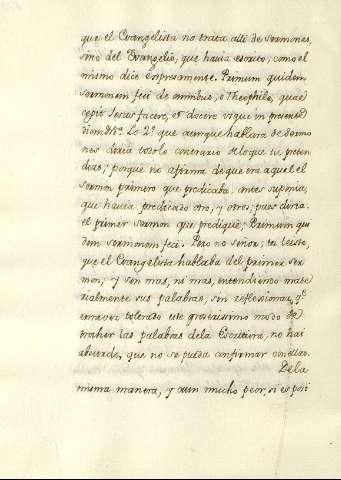 que el Evangelista no trata alli de Sermones,
sino del Evangelio, que havia escrito, como el
mismo dice expresamente. Primum quidem
sermonem feci de omnibus, o Theophile, quae
cepit Jesus facere, et docere usque in
Lo 2º que aunque hablara de Sermo
nes diria todo lo contrario de lo que tu preten
des; porque no afirma de que era aquel el
Sermon primero que predicaba, antes suponia,
que havia predicado otro, y otros; pues diria:
el primer Sermon que predique, Primum qui
dem Sermonem feci. Pero no señor; tu leiste,
que el Evangelista hablaba del primer Ser
mon; y sin mas, ni mas, entendiendo mate
rialmente sus palabras, sin reflexionar, q.e
tolerado este groserissimo modo de
traher las palabras de la Escritura, no hai
absurdo, que no se pueda confirmar con ellas.
De la
misma manera, y aun mucho peor, si es posi